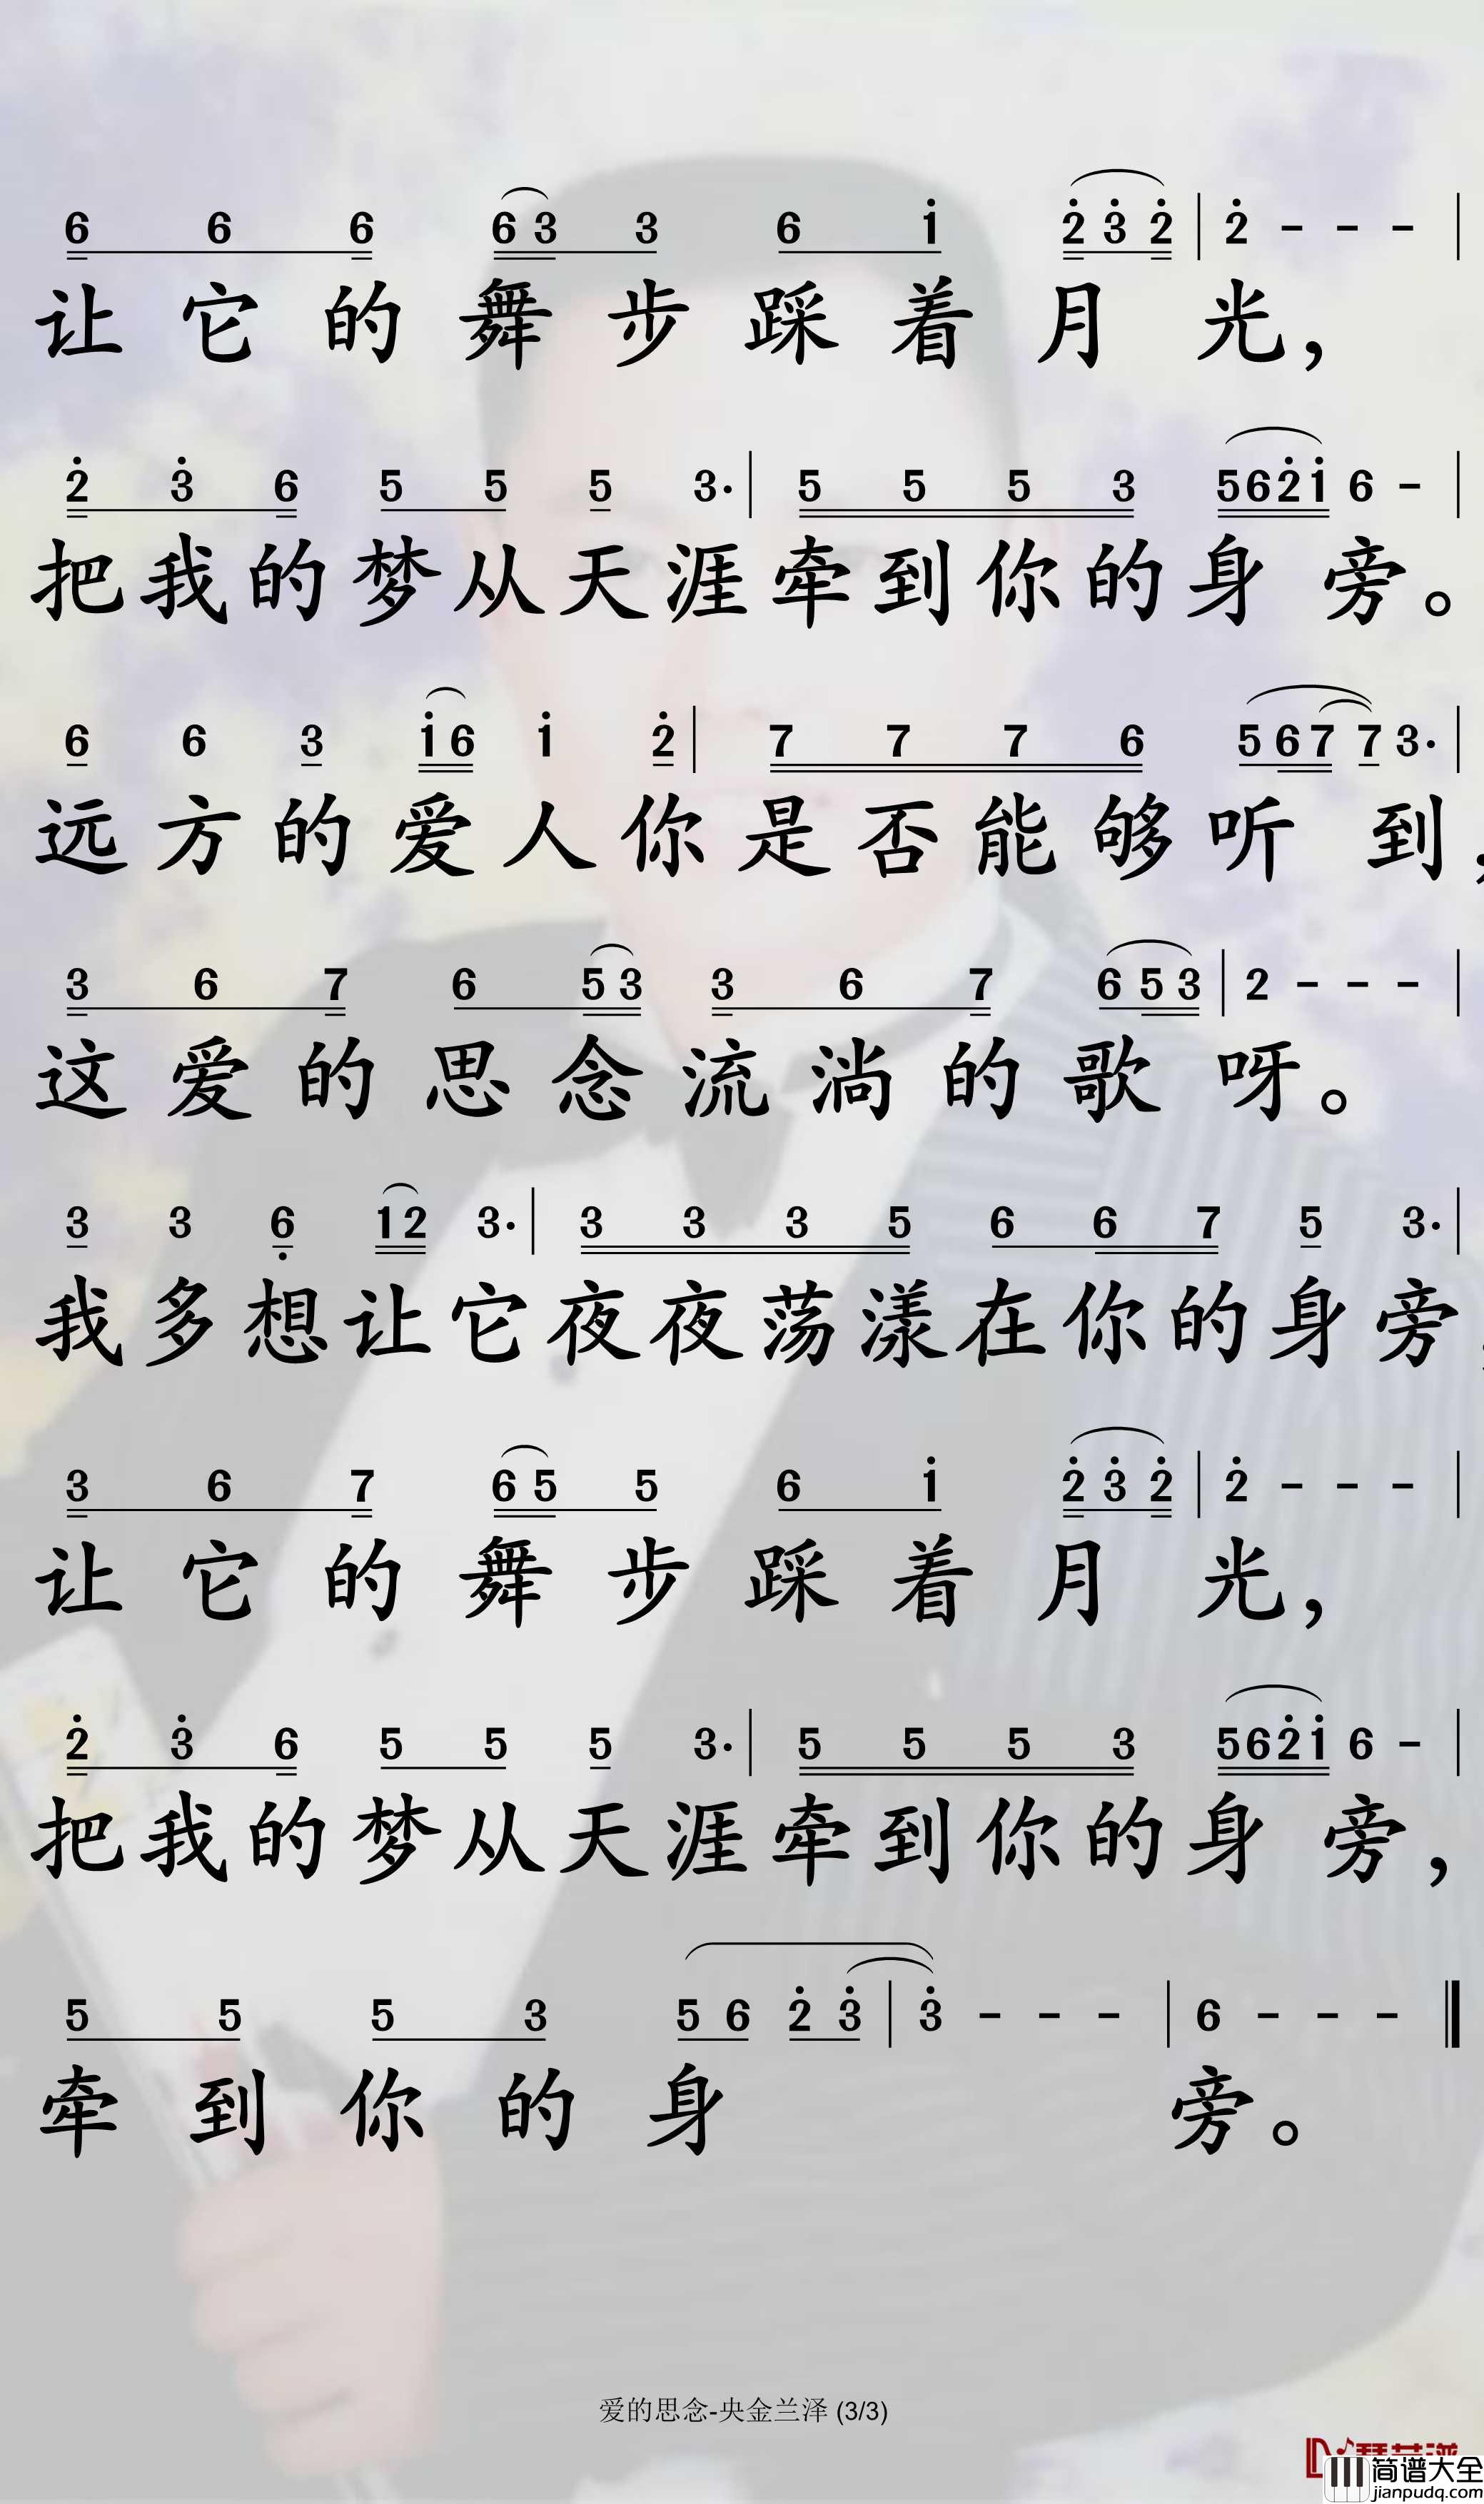 6 6 6 63 3 6 i 2 3 2 | 2 - - - |
让它的舞步踩着月光,
2 3 6 5 5 5 3. | 5 5 5 3 562i 6 - |
把我的梦从天涯牵到你的身旁。
6 6 3 i6 i 2 | 7 7 7 6 567 7 3. |
远方的爱人你是否能够听到,
3 6 7 6 53 3 6 7 653 | 2 - - - |
这爱的思念流淌的歌呀。
3 3 6 12 3. | 3 3 3 5 6 6 7 5 3. |
我多想让它夜夜荡漾在你的身旁,
3 6 7 65 5 6 i 2 3 2 | 2 - - - |
让它的舞步踩着月光,
2 3 6 5 5 5 3. | 5 5 5 3 562i 6 - |
把我的梦从天涯牵到你的身旁,
5 5 5 3 5 6 2 3 | 3 - - - | 6 - - - ‖
牵到你的身旁。
爱的思念-央金兰泽 (3/3)
简谱大全
jianpudq.com